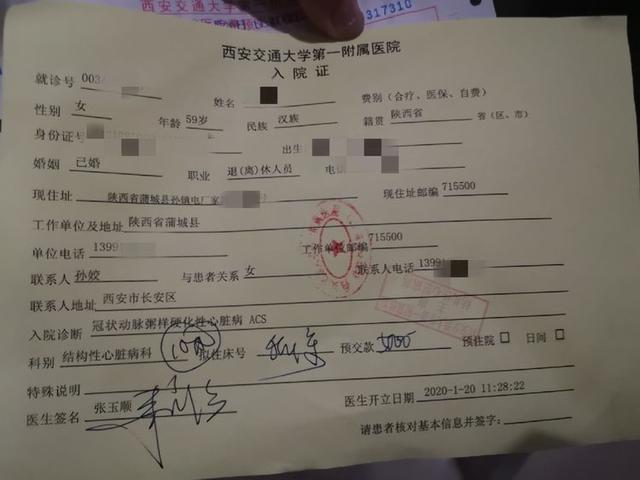 317310
西安交通大学第一附属医院
入院证
就诊号 003 姓名 费别（合疗、医保、自费）
性别 女 年龄 59岁 民族 汉族 籍贯 陕西省 省（区、市）
身份证号 出生
婚姻 已婚 职业 退(离)休人员 电话
现住址 陕西省蒲城县孙镇电厂家 现住址邮编 715500
工作单位及地址 陕西省蒲城县
单位电话 1399 工作单位邮编 715500
联系人 孙姣 与患者关系 女 联系人电话 1399
联系人地址 西安市长安区
入院诊断 冠状动脉粥样硬化性心脏病 ACS
科别 结构性心脏病科 拟住床号 预交款 预住院 □ 日间 □
特殊说明
医生签名 张玉顺 医生开立日期 2020-1-20 11:28:22
请患者核对基本信息并签字：